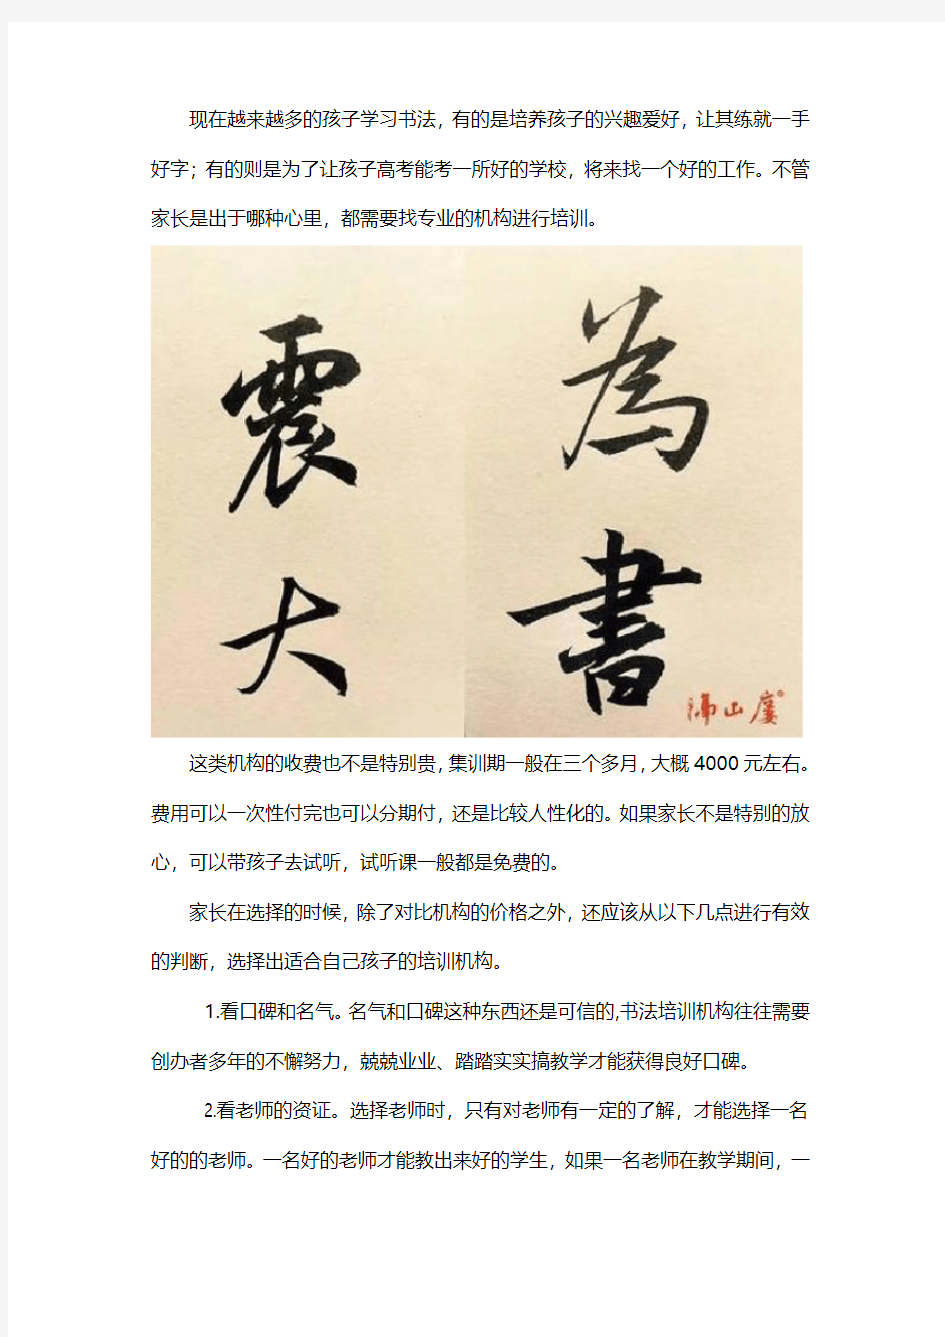 现在越来越多的孩子学习书法，有的是培养孩子的兴趣爱好，让其练就一手
好字；有的则是为了让孩子高考能考一所好的学校，将来找一个好的工作。不管
家长是出于哪种心里，都需要找专业的机构进行培训。
為
書
震
大
这类机构的收费也不是特别贵，集训期一般在三个多月，大概 4000 元左右。
费用可以一次性付完也可以分期付，还是比较人性化的。如果家长不是特别的放
心，可以带孩子去试听，试听课一般都是免费的。
家长在选择的时候，除了对比机构的价格之外，还应该从以下几点进行有效
的判断，选择出适合自己孩子的培训机构。
1.看口碑和名气。名气和口碑这种东西还是可信的,书法培训机构往往需要
创办者多年的不懈努力，兢兢业业、踏踏实实搞教学才能获得良好口碑。
2.看老师的资证。选择老师时，只有对老师有一定的了解，才能选择一名
好的的老师。一名好的老师才能教出来好的学生，如果一名老师在教学期间，一